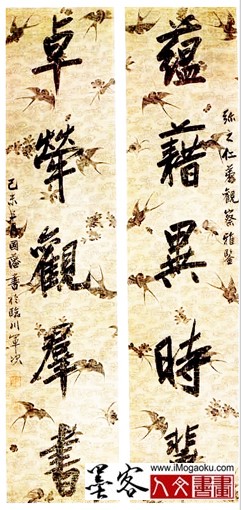 弥之仁㢤觀察雅鑒
蘊藉異時輩
卓犖觀羣書
己未 國藩書於臨川軍次
www.iMogaoku.com
墨客
人文書畫